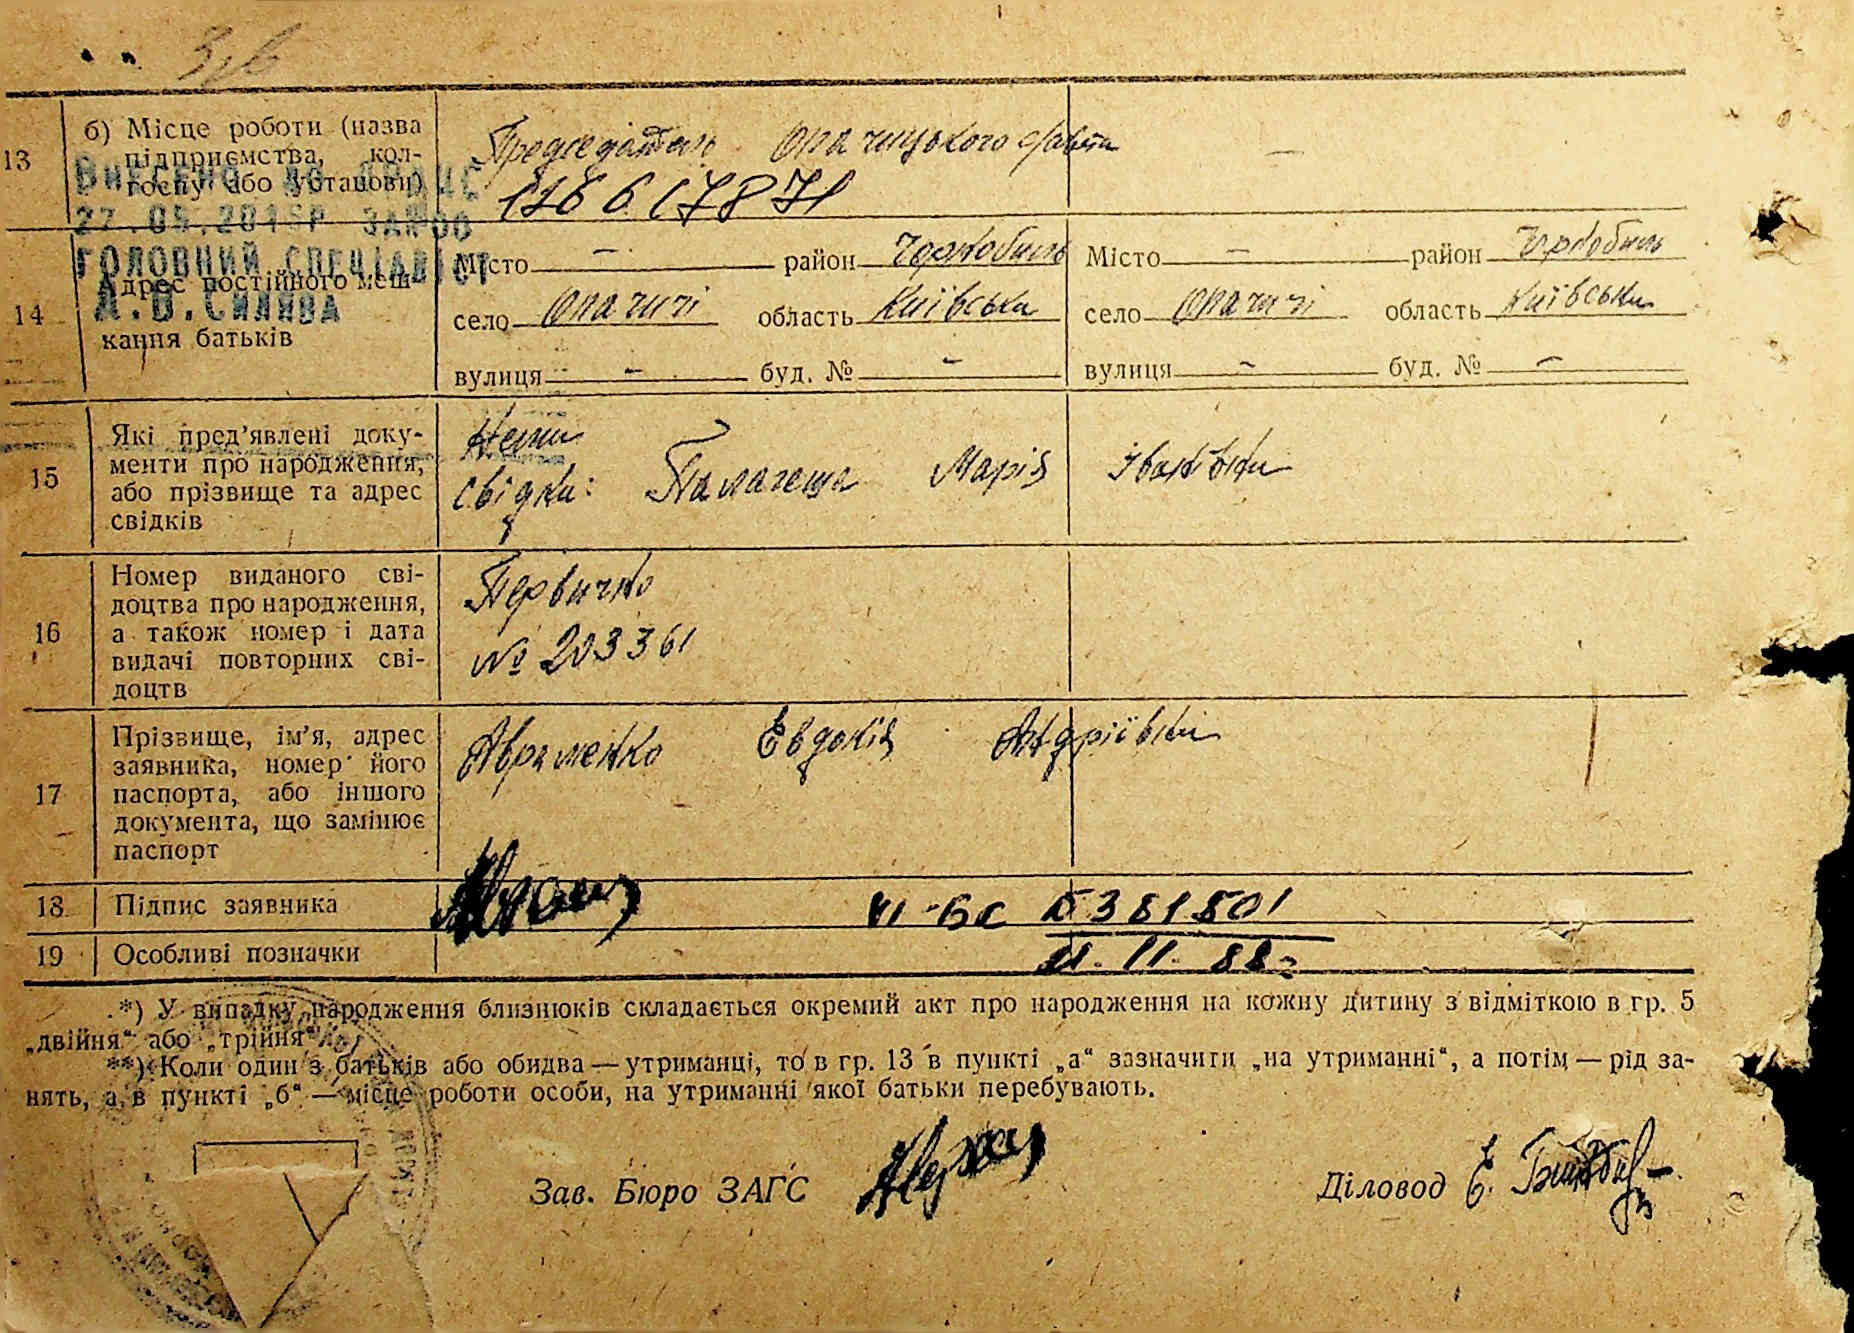 13
б) Місце роботи (назва
підприємства, кол-
госпу або установи)
Председатель Опачицького с/ради
—
ВНЕСЕНО ДО ДРАЦС
27.05.2015Р
ГОЛОВНИЙ СПЕЦІАЛІСТ
14
Адрес постійного меш-
кання батьків
Місто — район Чорнобиль
село Опачичі область Київська
вулиця — буд. № —
Місто — район Чорнобиль
село Опачичі область Київська
вулиця — буд. № —
15
Які пред’явлені доку-
менти про народження,
або прізвище та адрес
свідків
свідки: Марія Іванівна
16
Номер виданого сві-
доцтва про народження,
а також номер і дата
видачі повторних сві-
доцтв
Первично
№ 203361
17
Прізвище, ім’я, адрес
заявника, номер його
паспорта, або іншого
документа, що замінює
паспорт
Авраменко Евдокія Андріївни
18
Підпис заявника
19
Особливі позначки
11. 88
*) У випадку народження близнюків складається окремий акт про народження на кожну дитину з відміткою в гр. 5
„двійня“ або „трійня“
**) Коли один з батьків або обидва — утриманці, то в гр. 13 в пункті „а“ зазначити „на утриманні“, а потім — рід за-
нять, а в пункті „б“ — місце роботи особи, на утриманні якої батьки перебувають.
Зав. Бюро ЗАГС
Діловод